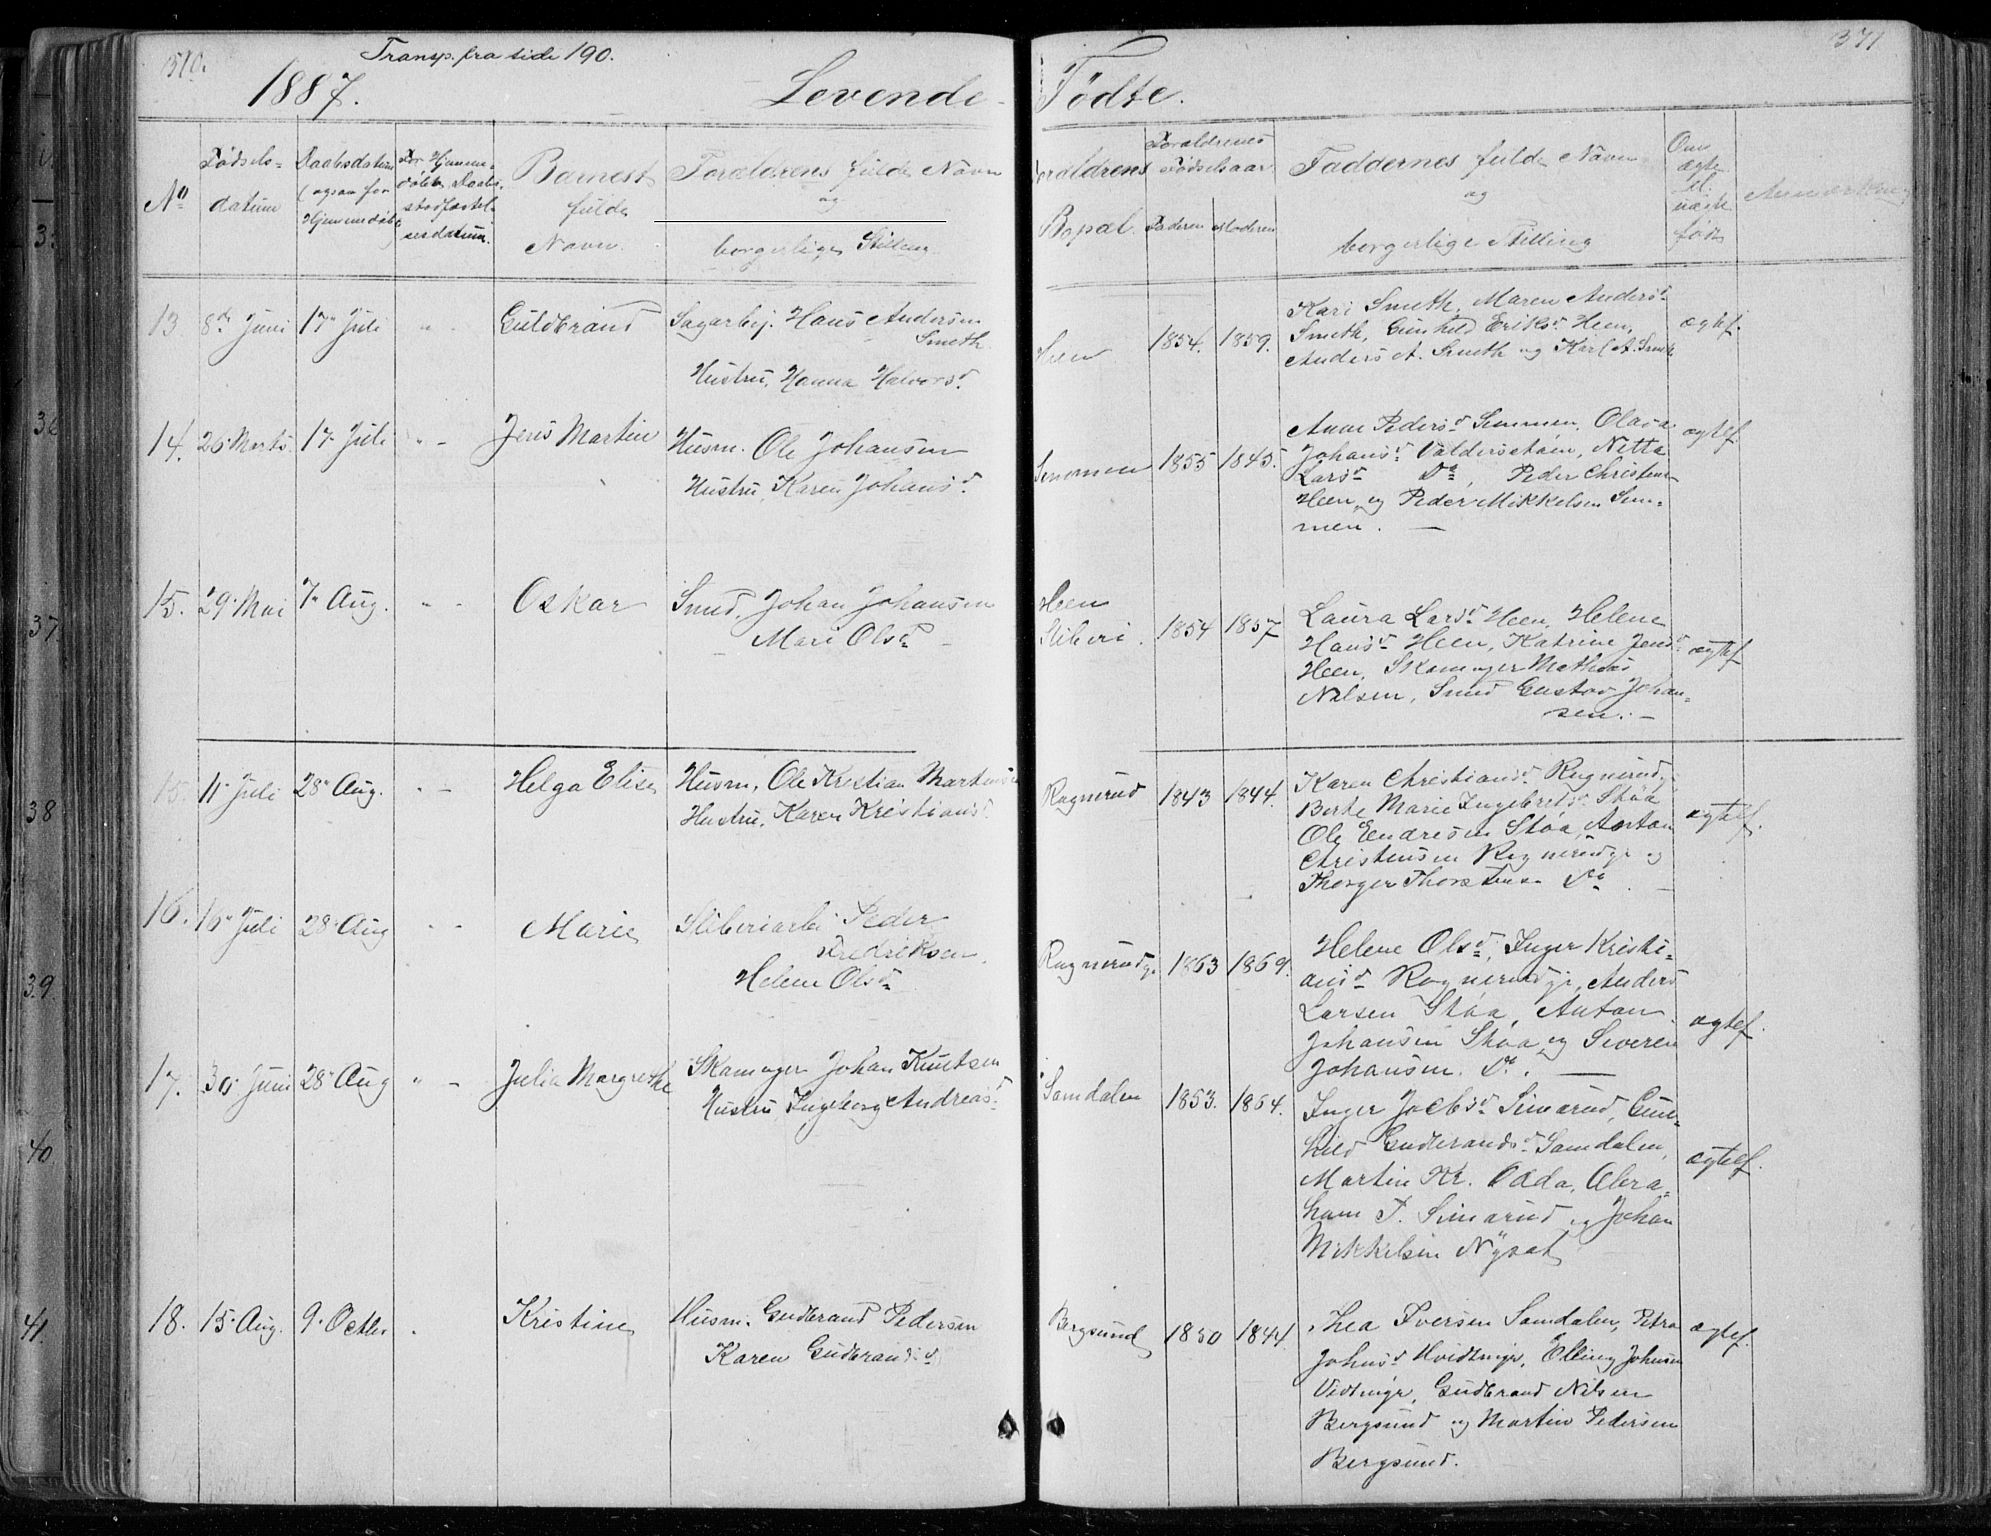 370.
Transp. fra side 190.
1887.
Levende
Fødte.
371
No
Fødsels-
datum
Daabsdatum
(ogsaa for
Hjemmedøbte
For Hjemme-
døbte Daabs-
stadfæstel-
sesdatum.
Barnets
fulde
Navn.
Forældrens fulde Navn
og
borgerlige Stilling
Forældrens
Bopæl.
Forældrenes
Fødselsaar
Faderen
Moderen
Faddernes fulde Navn
og
borgerlige Stilling
Om
ægte
el.
uægte
født
Anmærkning
13 8de Juni 17 Juli " - Guldbrand Sagarbej. Hans Andersen
Smeth.
Hustru, Hanna Halvorsd.
Heen 1854. 1859.
Kari Smeth, Maren Andersd.
Smeth, Gunhild Eriksd. Heen,
Anders A. Smeth og Karl A. Smeth
ægtef.
14. 26 Marts 17 Juli " - Jens Martin Husm. Ole Johansen
Hustru, Karen Johansd.
Semmen 1855 1845.
Anne Pedersd. Semmen, Olava
Johansd. Valdersstøen, Netta
Larsd. Do, Peder Christens
Heen, og Peder Mikkelsen Sem-
men. —
ægtef.
15. 29 Mai 7 Aug. " - Oskar Smed, Johan Johansen
Mari Olsd. -
Heen
Sliberi. 1854 1857
Laura Larsd. Heen, Helene
Hansd. Heen, Katrine Jensd.
Heen, Skomager Mathias
Nilsen, Smed Gustav Johan-
sen. -
ægtef
15. 11 Juli 28 Aug. " - Helga Elise Husm. Ole Kristian Martinsen
Hustru. Karen Kristiansd.
Rognerud 1843 1844.
Karen Christiansd. Rognerudgr.
Berte Marie Ingebretsd. Støa
Ole Endresen Støa, Anton
Christensen Rognerudgr. og
Thorger Thorstens. Do. —
ægtef.
16. 16 Juli 28 Aug " - Marie Sliberiarb. Peder
Fredriksen.
Helene Olsd.
Rognerudgr. 1863 1869.
Helene Olsd., Inger Kristi-
ansd. Rognerudgr., Anders
Larsen Støa, Anton
Johansen Støa og Severen
Johansen. Do. —
ægtef.
17. 30 Juni 28 Aug " - Julia Margrethe Skomager Johan Knutsen
Hustru, Ingeborg Andreasd.
Samdalen 1853. 1864.
Inger Jacobsd. Simarud, Gun-
hild Gudbrandsd. Samdalen,
Martin Kr. Odda, Abra-
ham P. Simarud og Johan
Mikkelsen Nysat
ægtef.
18. 15 Aug. 9 Octbr Kristine Husm. Gudbrand Pedersen
Karen Gudbrandsd.
Bergsund 1850 1844.
Thea Iversen Samdalen, Petra
Johnsd. Hvidtingr., Elling Johnsen
Vidtingr., Gudbrand Nilsen
Bergsund og Martin Pedersen
Bergsund.
ægtef.
36
37
38
39
40
41.